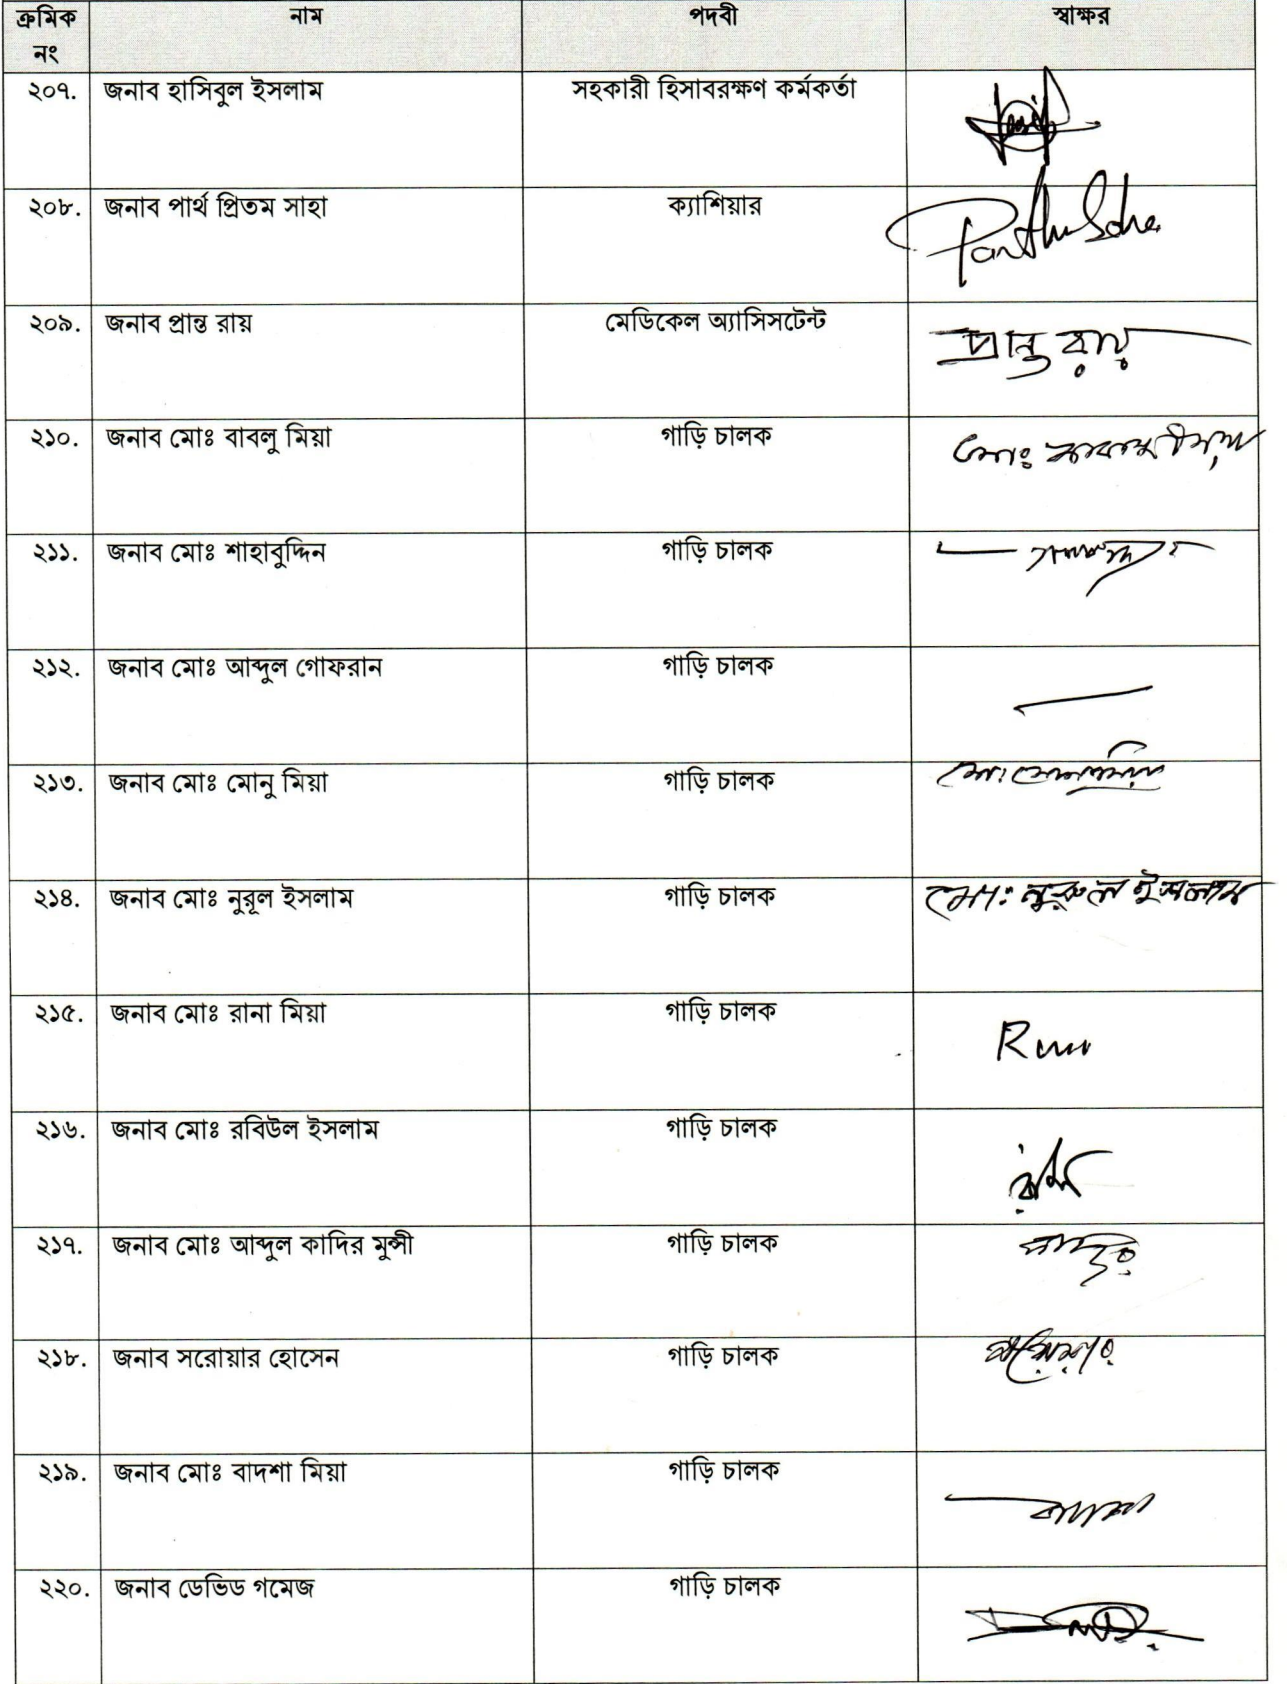 ক্রমিক নং নাম পদবী স্বাক্ষর
২০৭. জনাব হাসিবুল ইসলাম সহকারী হিসাবরক্ষণ কর্মকর্তা
২০৮. জনাব পার্থ প্রিতম সাহা ক্যাশিয়ার
২০৯. জনাব প্রান্ত রায় মেডিকেল অ্যাসিসটেন্ট প্রান্ত রায়
২১০. জনাব মোঃ বাবলু মিয়া গাড়ি চালক মোঃ বাবলু মিয়া
২১১. জনাব মোঃ শাহাবুদ্দিন গাড়ি চালক
২১২. জনাব মোঃ আব্দুল গোফরান গাড়ি চালক
২১৩. জনাব মোঃ মোনু মিয়া গাড়ি চালক
২১৪. জনাব মোঃ নুরুল ইসলাম গাড়ি চালক মো: নুরুল ইসলাম
২১৫. জনাব মোঃ রানা মিয়া গাড়ি চালক
২১৬. জনাব মোঃ রবিউল ইসলাম গাড়ি চালক
২১৭. জনাব মোঃ আব্দুল কাদির মুন্সী গাড়ি চালক
২১৮. জনাব সরোয়ার হোসেন গাড়ি চালক
২১৯. জনাব মোঃ বাদশা মিয়া গাড়ি চালক
২২০. জনাব ডেভিড গমেজ গাড়ি চালক